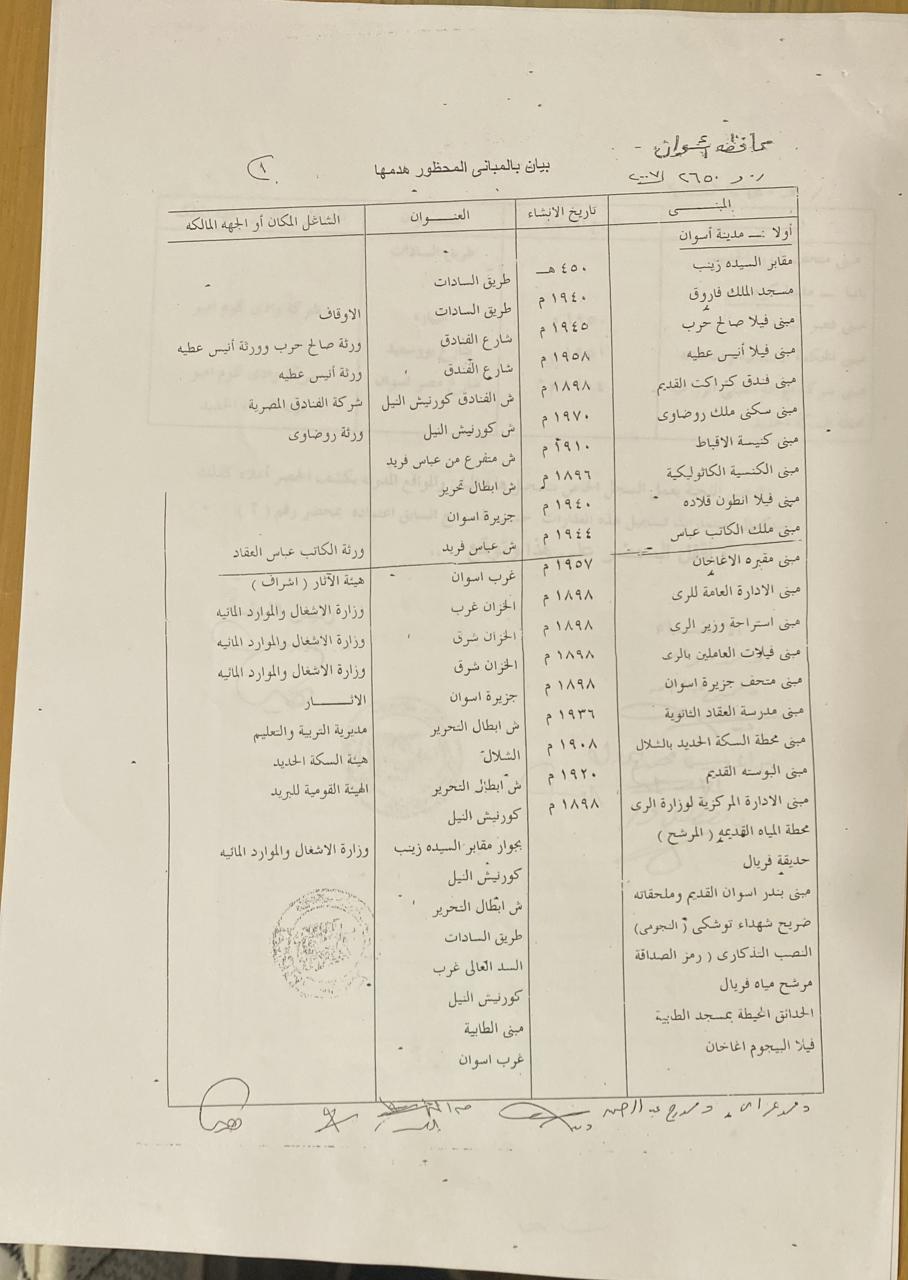 محافظة أسوان
ر. و ٢٦٥٠ لسنة ٢٠٠٧
بيان بالمبانى المحظور هدمها
١
المبنــى تاريخ الانشاء العنـــوان الشاغل المكان أو الجهه المالكه
أولا :ــ مدينة أسوان
مقابر السيده زينب ٤٥٠ هـ طريق السادات
مسجد الملك فاروق ١٩٤٠ م طريق السادات الاوقاف
مبنى فيلا صالح حرب ١٩٤٥ م شارع الفنادق ورثة صالح حرب وورثة أنيس عطيه
مبنى فيلا أنيس عطيه ١٩٥٨ م شارع الفندق ورثة أنيس عطيه
مبنى فندق كتراكت القديم ١٨٩٨ م ش الفنادق كورنيش النيل شركة الفنادق المصرية
مبنى سكنى ملك روضاوى ١٩٧٠ م ش كورنيش النيل ورثة روضاوى
مبنى كنيسة الاقباط ١٩١٠ م ش متفرع من عباس فريد
مبنى الكنسية الكاثوليكية ١٨٩٦ م ش ابطال تحرير
مبنى فيلا انطون قلاده ١٩٤٠ م جزيرة اسوان
مبنى ملك الكاتب عباس ١٩٤٤ م ش عباس فريد ورثة الكاتب عباس العقاد
مبنى مقبره الاغاخان ١٩٥٧ م غرب اسوان هيئة الآثار ( اشراف )
مبنى الادارة العامة للرى ١٨٩٨ م الخزان غرب وزارة الاشغال والموارد المائيه
مبنى استراحة وزير الرى ١٨٩٨ م الخزان شرق وزارة الاشغال والموارد المائيه
مبنى فيلات العاملين بالرى ١٨٩٨ م الخزان شرق وزارة الاشغال والموارد المائيه
مبنى متحف جزيرة اسوان ١٨٩٨ م جزيرة اسوان الاثـــــار
مبنى مدرسة العقاد الثانوية ١٩٣٦ م ش ابطال التحرير مديرية التربية والتعليم
مبنى محطة السكة الحديد بالشلال ١٩٠٨ م الشلال هيئة السكة الحديد
مبنى البوسته القديم ١٩٢٠ م ش ابطال التحرير الهيئة القومية للبريد
مبنى الادارة المركزية لوزارة الرى ١٨٩٨ م كورنيش النيل
محطة المياه القديمه ( المرشح ) بجوار مقابر السيده زينب وزارة الاشغال والموارد المائيه
حديقة فريال كورنيش النيل
مبنى بندر اسوان القديم وملحقاته ش ابطال التحرير
ضريح شهداء توشكى ( النجومى ) طريق السادات
النصب التذكارى ( رمز الصداقة السد العالى غرب
مرشح مياه فريال كورنيش النيل
الحدائق المحيطة بمسجد الطابية مبنى الطابية
فيلا البيجوم اغاخان غرب اسوان